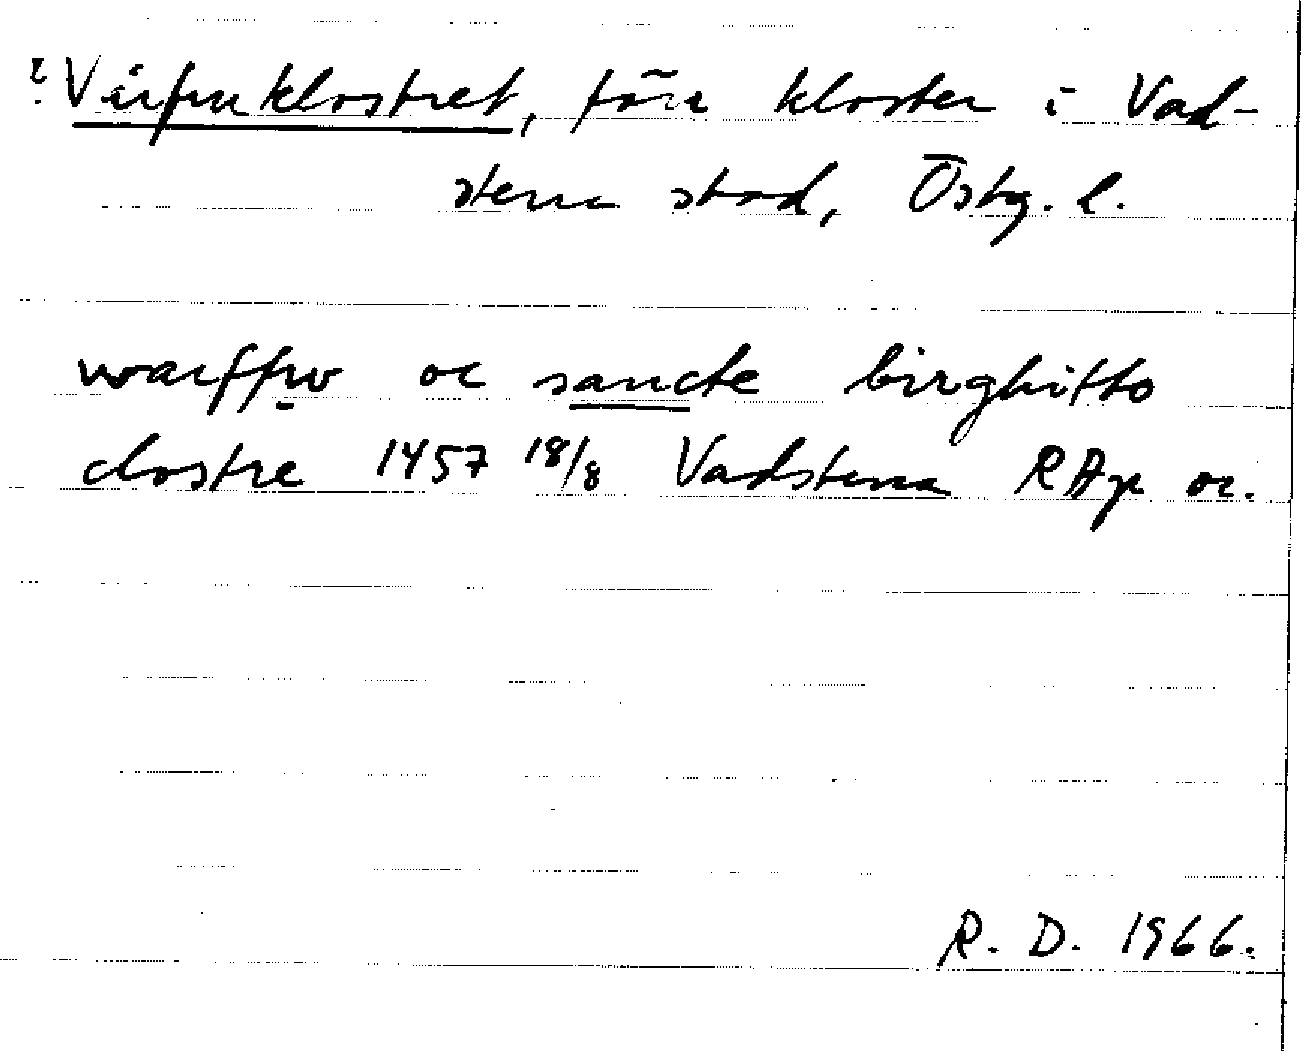 ? Vårfruklostret, förr kloster i Vad-
stena stad, Östg. l.
warffrv oc sancte birghitto
clostre 1457 18/8 Vadstena RAp or.
R. D. 1966.